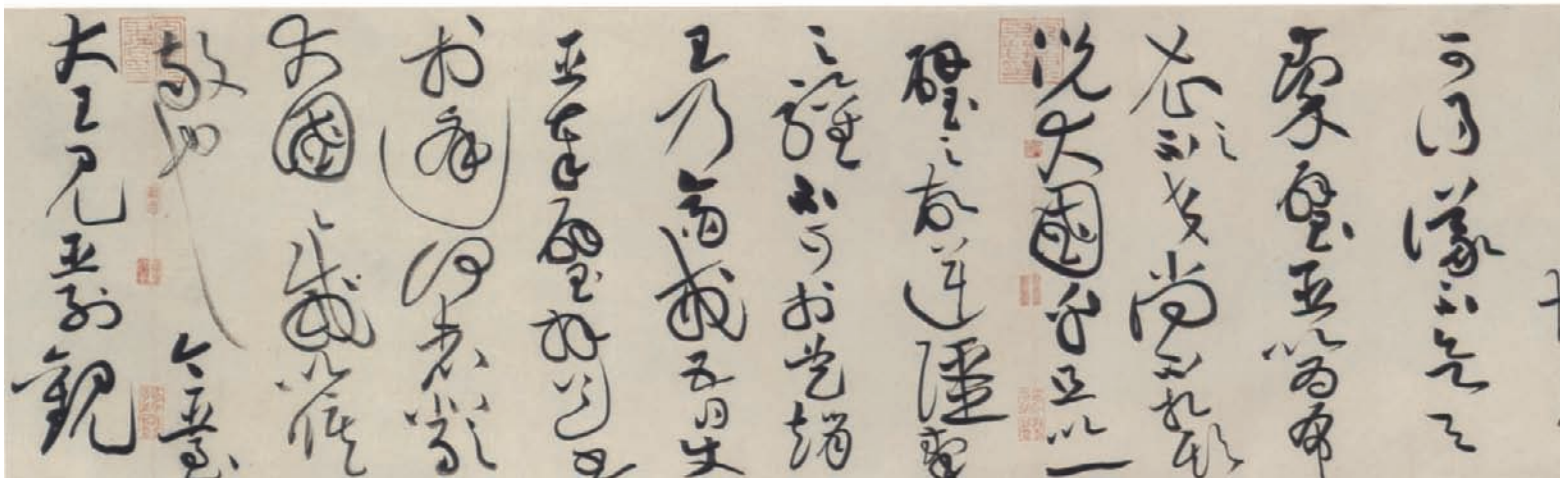 可得議不欲予
秦璧臣以為布
衣之交尚不相欺
況大國乎且以一
璧之故逆彊秦
之驩不可於是趙
王乃齋戒五日使
臣奉璧拜送書
於庭何者嚴
大國之威以脩
敬也今臣至
大王見臣列觀